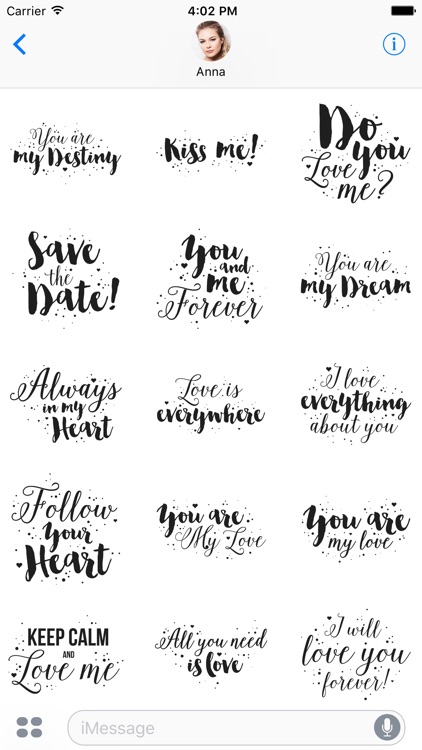 Carrier 4:02 PM
Anna
You are
my Destiny
Kiss me!
Do
you
Love
me?
Save
the
Date!
You
and
me
Forever
You are
my Dream
Always
in my
Heart
Love is
everywhere
I love
everything
about you
Follow
Your
Heart
You are
My Love
You are
my love
KEEP CALM
AND
Love me
All you need
is love
I will
love you
forever!
iMessage